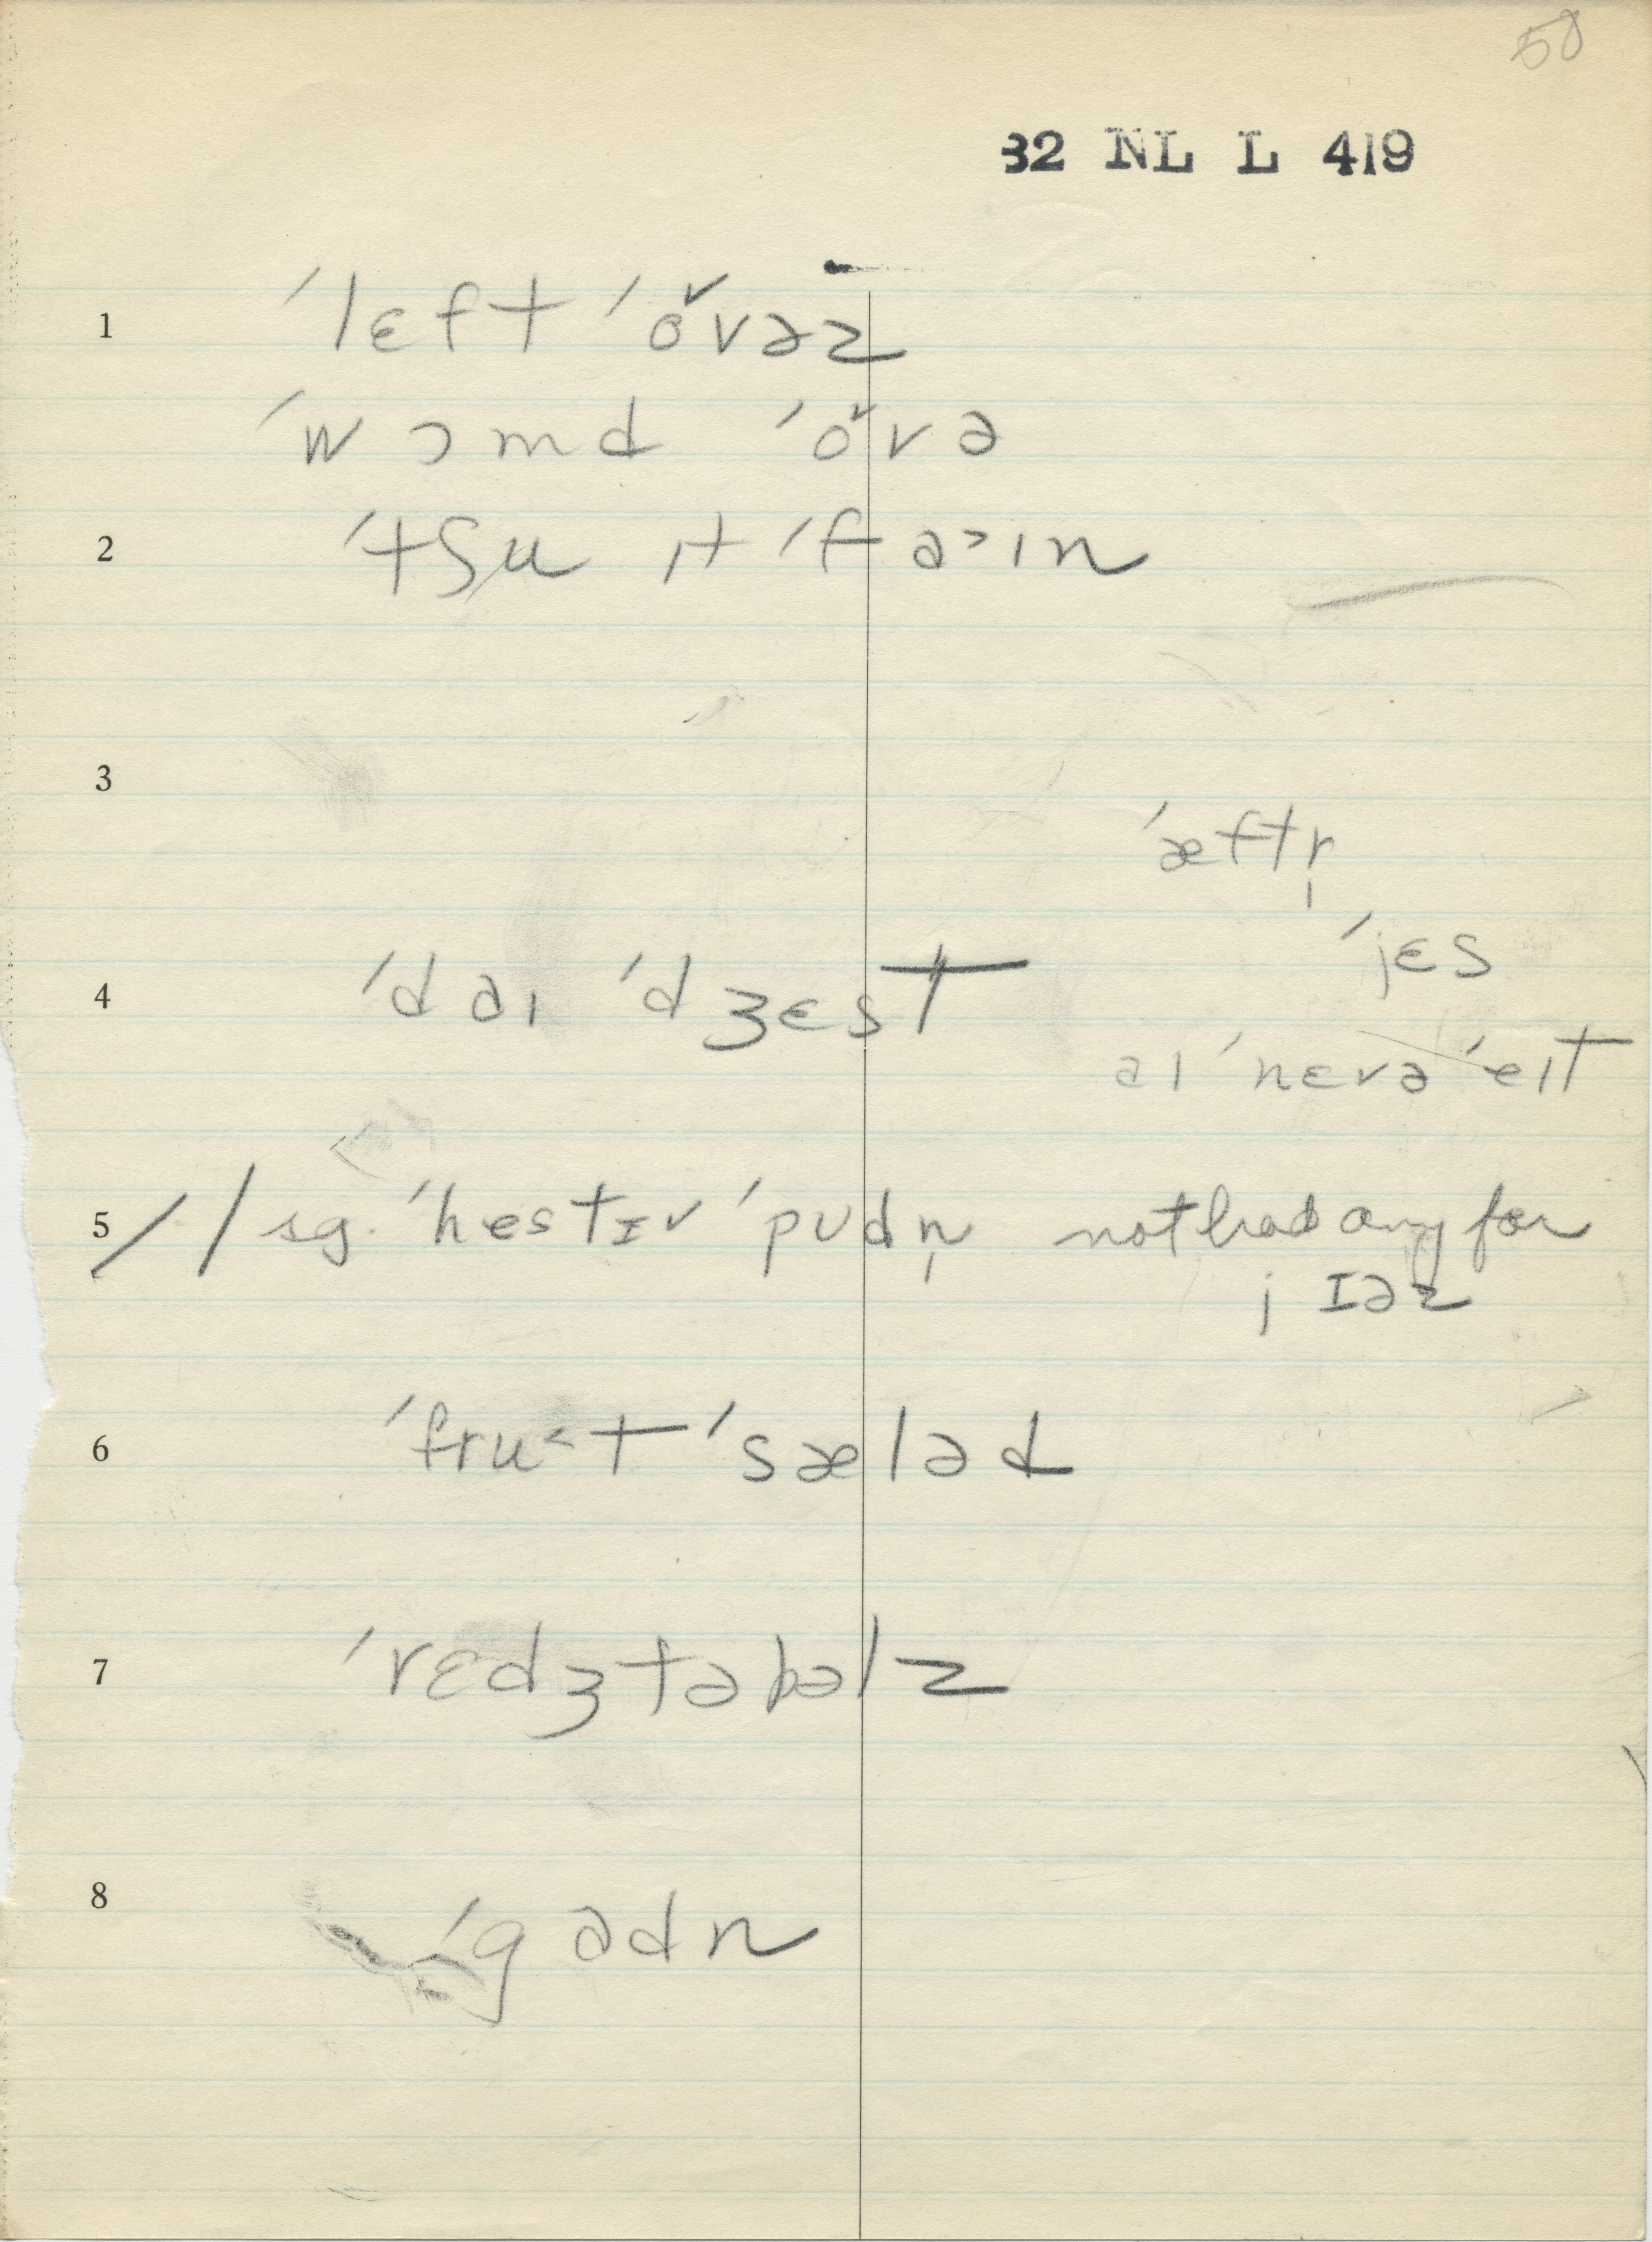 50
32 NL L 419
1 ˈlɛft ˈo˅vəz
ˈwɔmd ˈo˅və
2 ˈtʃu ɪt ˈfa˃ɪn
3
ˈæftr̩
ˈjɛs
4 ˈdaɪ ˈdʒɛst
aɪ ˈnɛvə ˈeɪt
5 // sg. ˈhestɪv ˈpʊdn̩ not had any for
jɪəz
6 ˈfru˂t ˈsæləd
7 ˈvɛdʒtəbəlz
8 ˈgadn